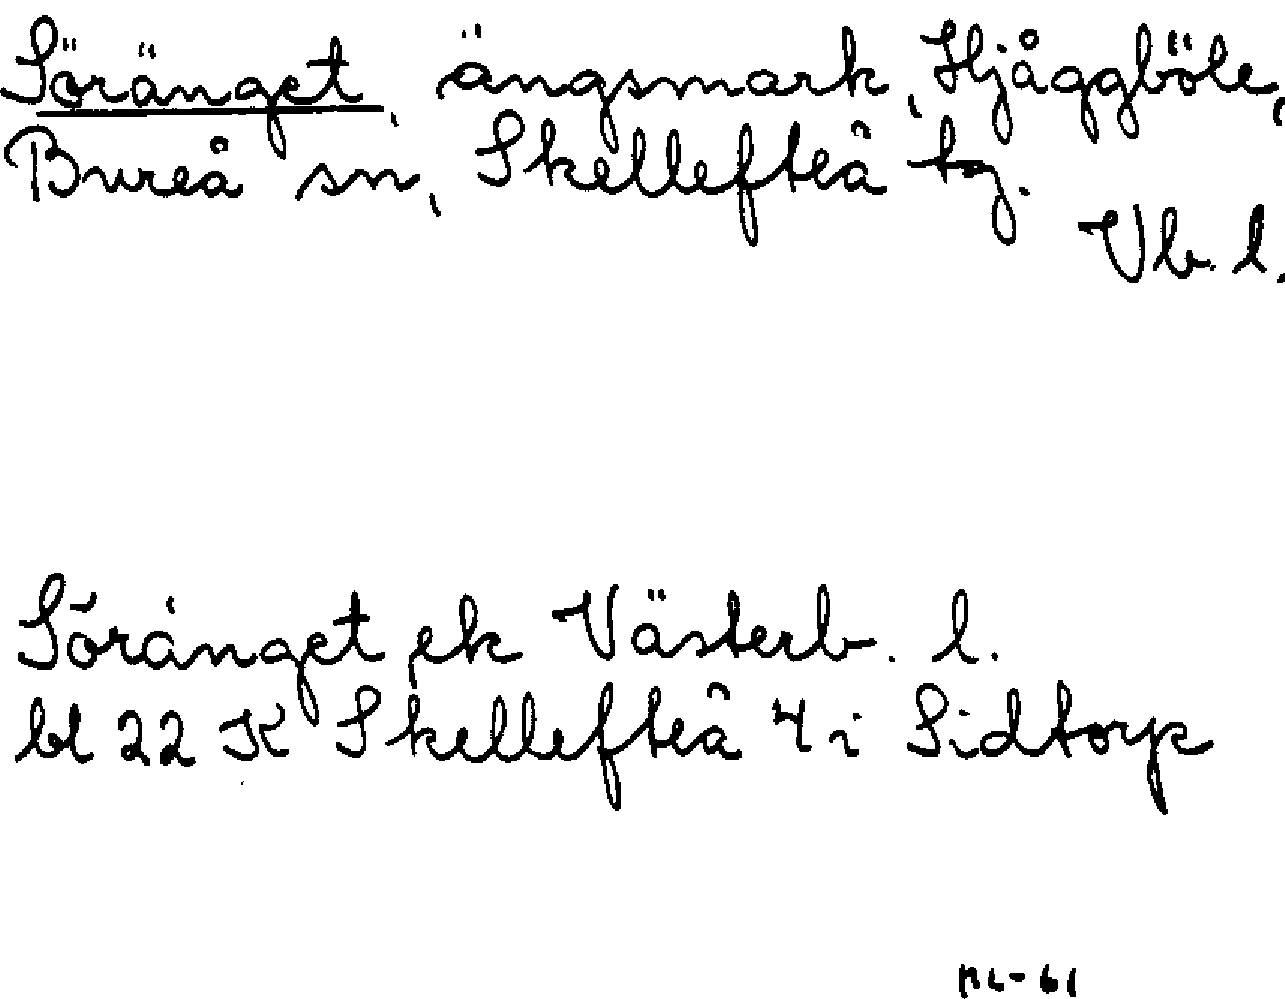 Söränget, ängsmark, Hjåggböle,
Bureå sn, Skellefteå tg.
Vb. l.
Söränget ek Västerb. l.
bl 22 K Skellefteå 4 i Sidtorp